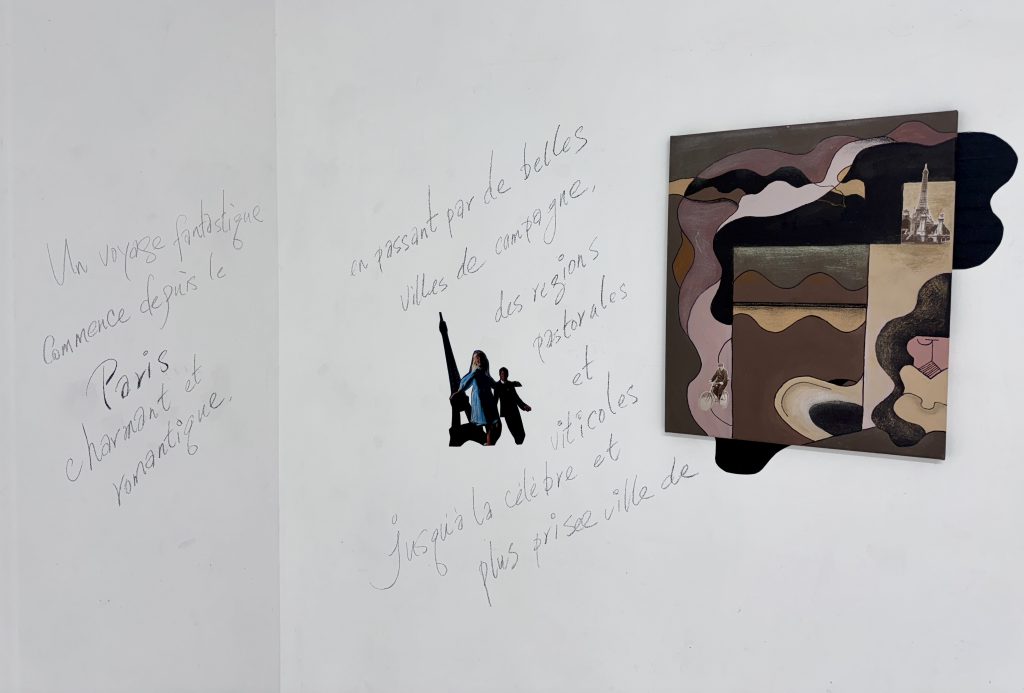 Un voyage fantastique
commence depuis le
Paris
charmant et
romantique.
en passant par de belles
villes de campagne,
des regions
pastorales
et
viticoles
jusqu'à la célèbre et
plus prisée ville de